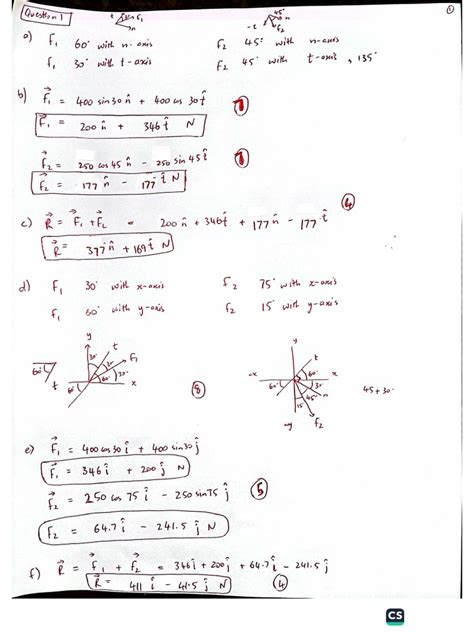 Question 1
①
t 30 F₁
n
45° n
-t F₂
a) F₁ 60° with n-axis F₂ 45° with n-axis
F₁ 30° with t-axis F₂ 45° with t-axis, 135°
b) F₁ = 400 sin 30 n̂ + 400 cos 30 t̂
F₁ = 200 n̂ + 346 t̂ N
F₂ = 250 cos 45 n̂ - 250 sin 45 t̂
F₂ = 177 n̂ - 177 t̂ N
④
c) R = F₁ + F₂ = 200 n̂ + 346 t̂ + 177 n̂ - 177 t̂
R = 377 n̂ + 169 t̂ N
d) F₁ 30° with x-axis F₂ 75° with x-axis
F₁ 60° with y-axis F₂ 15° with y-axis
y
t
30° 30 F₁
60° 30°
60° t
60°
x
⑧
y
t
-x 60° x
60° 30
45
15 n
-y F₂
45+30
e) F₁ = 400 cos 30 î + 400 sin 30 ĵ
F₁ = 346 î + 200 ĵ N
F₂ = 250 cos 75 î - 250 sin 75 ĵ
⑤
F₂ = 64.7 î - 241.5 ĵ N
f) R = F₁ + F₂ = 346 î + 200 ĵ + 64.7 î - 241.5 ĵ
R = 411 î - 41.5 ĵ N
④
CS